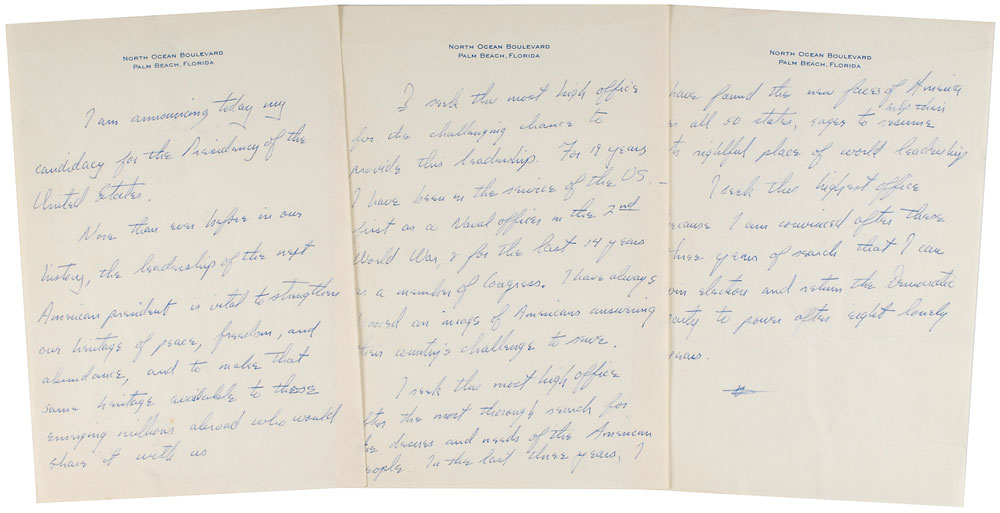 NORTH OCEAN BOULEVARD
PALM BEACH, FLORIDA
I am announcing today my
candidacy for the Presidency of the
United States.
More than ever before in our
history, the leadership of the next
American president is vital to strengthen
our heritage of peace, freedom, and
abundance, and to make that
same heritage available to those
emerging millions abroad who would
share it with us.
NORTH OCEAN BOULEVARD
PALM BEACH, FLORIDA
I seek this most high office
for the challenging chance to
provide this leadership. For 19 years
I have been in the service of the US. –
first as a Naval officer in the 2nd
World War, & for the last 14 years
as a member of Congress. I have always
an image of Americans answering
their country's challenge to serve.
I seek this most high office
after the most thorough search for
the desires and needs of the American
people. In the last three years, I
NORTH OCEAN BOULEVARD
PALM BEACH, FLORIDA
have found the new faces of America
in all 50 states, eager to help their resume
its rightful place of world leadership
I seek this highest office
because I am convinced after these
three years of search that I can
win election and return the Democratic
party to power after eight lonely
years.
#